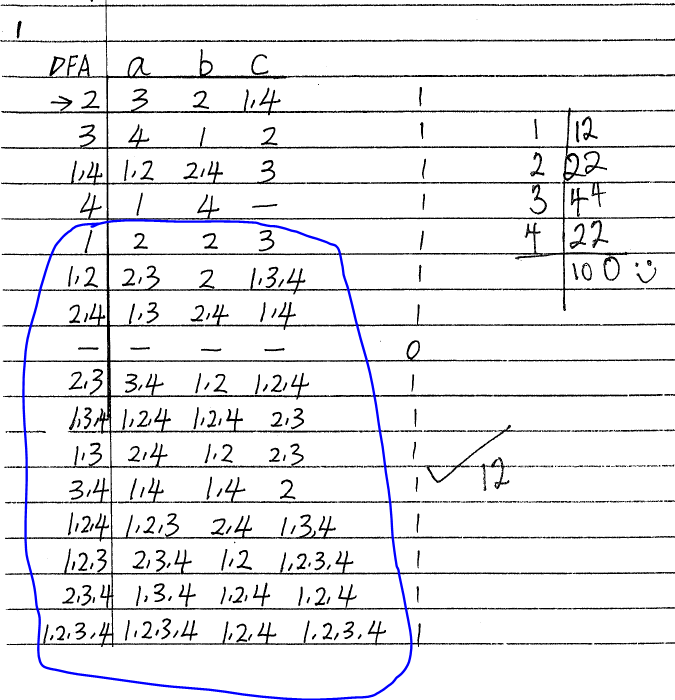 1
DFA a b c
→2 3 2 1,4 1
3 4 1 2 1
1,4 1,2 2,4 3 1
4 1 4 — 1
1 2 2 3 1
1,2 2,3 2 1,3,4 1
2,4 1,3 2,4 1,4 1
— — — — 0
2,3 3,4 1,2 1,2,4 1
1,3,4 1,2,4 1,2,4 2,3 1
1,3 2,4 1,2 2,3 1
3,4 1,4 1,4 2 1
1,2,4 1,2,3 2,4 1,3,4 1
1,2,3 2,3,4 1,2 1,2,3,4 1
2,3,4 1,3,4 1,2,4 1,2,4 1
1,2,3,4 1,2,3,4 1,2,4 1,2,3,4 1
1 12
2 22
3 44
4 22
100
✓ 12